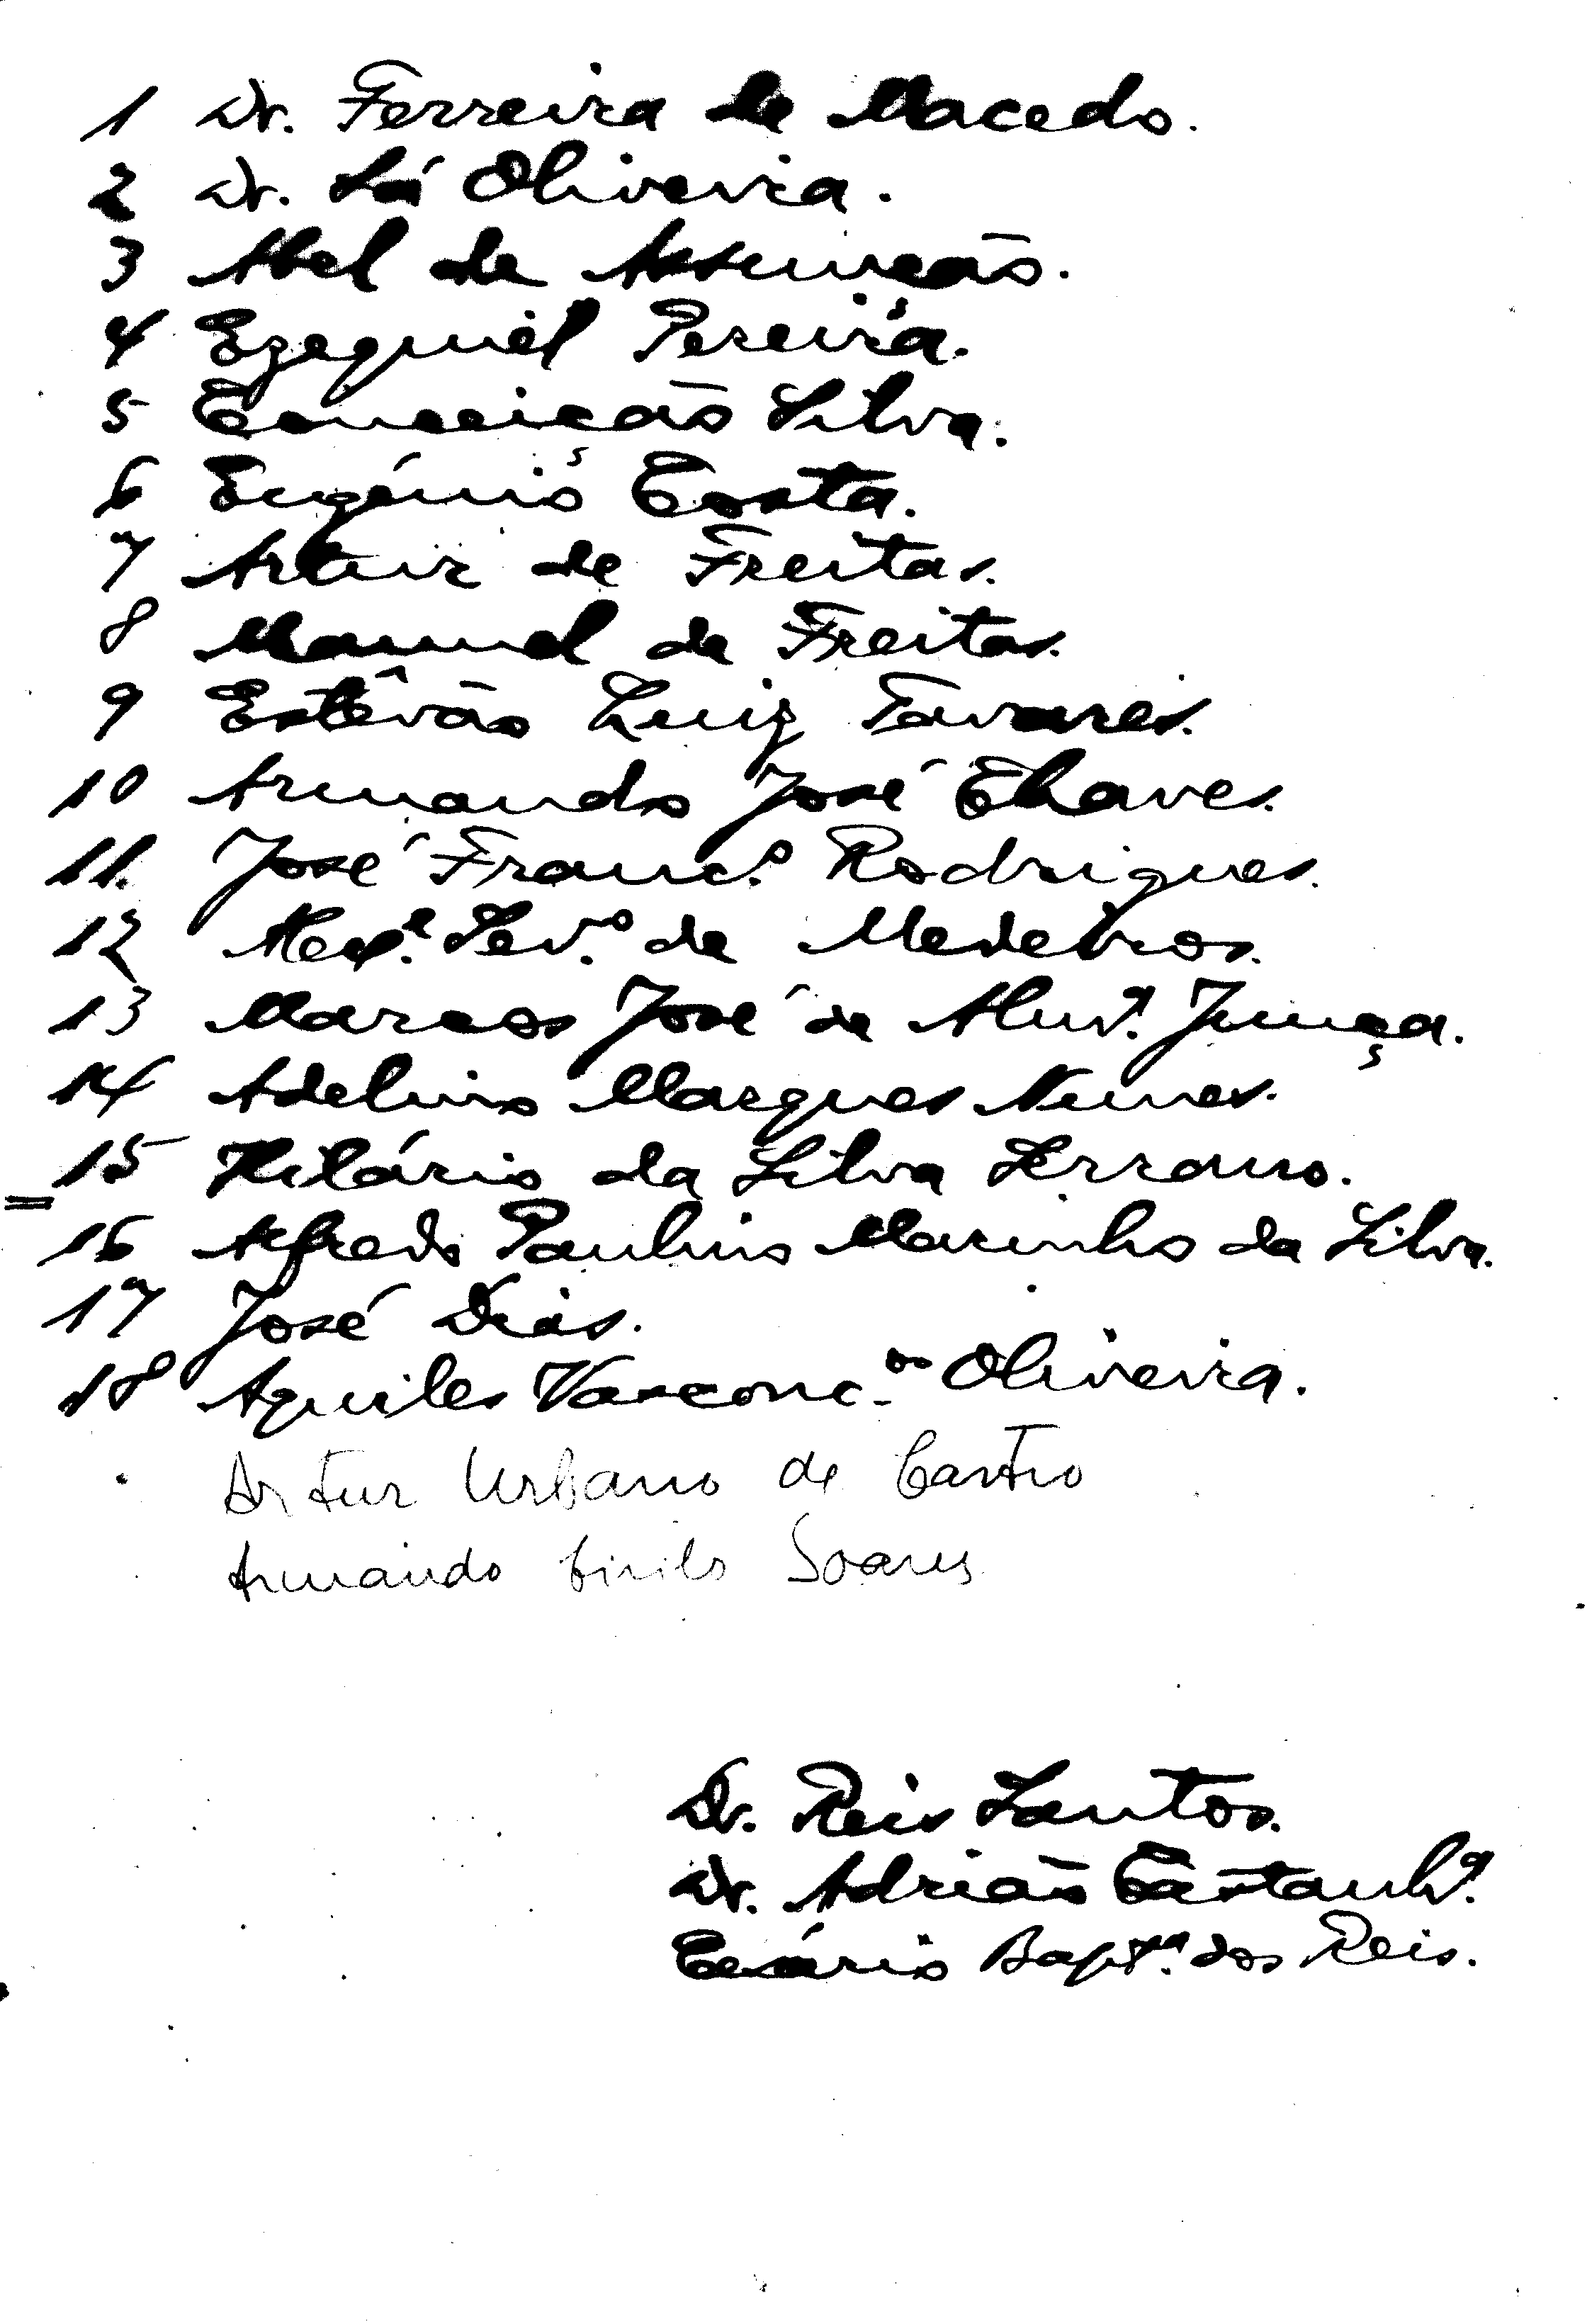 1 Dr. Ferreira de Macedo.
2 Dr. Sá Oliveira.
3 Abel de Assunção.
4 Ezequiel Pereira.
5 Conceição Silva.
6 Eugénio Costa.
7 Artur de Freitas.
8 Manuel de Freitas.
9 Estêvão Luiz Tavares.
10 Armando José Chaves.
11. José Franc.º Rodrigues.
12 de Medeiros.
13 Marcos José de Junça.
14 Adelino Marques Nunes.
15 Hilário da Silva Serrano.
16 Alfredo Paulino Marinho da Silva.
17 José Dias.
18 Aquiles Vasconc.os Oliveira.
Artur Urbano de Castro
Armando Cirilo Soares
Dr. Reis Santos.
Dr. Adrião Castanh.ª
Cesário Bapt.ª dos Reis.